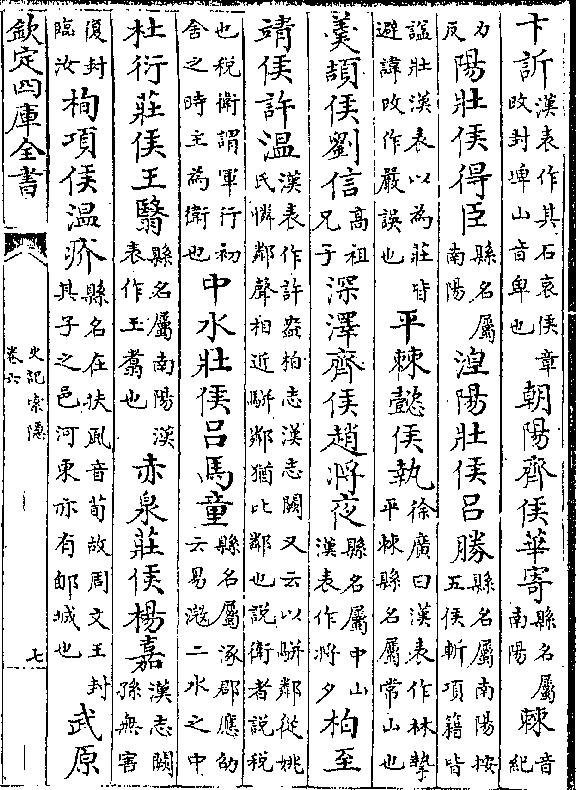 卞訢漢表作其石哀侯章改封埤山音卑也朝陽齊侯華寄縣名屬南陽棘音紀
力反陽壯侯得臣縣名屬南陽湼陽壯侯吕勝縣名屬南陽按五侯斬項籍皆
諡壯漢表以為莊皆避諱改作嚴誤也平棘懿侯執徐廣曰漢表作林摯平棘縣名屬常山也
羮頡侯劉信高祖兄子深澤齊侯趙將夜縣名屬中山漢表作將夕柏至
靖侯許温漢表作許盎柏志漢志闕又云以駢鄰從姚氏憐鄰聲相近駢鄰猶比鄰也說衛者說稅
也稅衛謂軍行初舍之時主為衛也中水壯侯吕馬童縣名屬涿郡應劭云易滱二水之中
杜衍莊侯王翳縣名屬南陽漢表作王翥也赤泉莊侯楊嘉漢志闕孫無害
復封臨汝栒項侯温疥縣名在扶風音荀故周文王封其子之邑河東亦有郇城也武原
欽定四庫全書
史記索隱
卷六
七